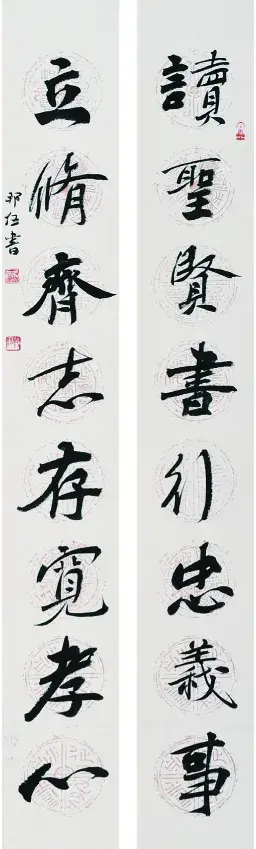 讀聖賢書行忠義事
立脩齊志存寬孝心
書